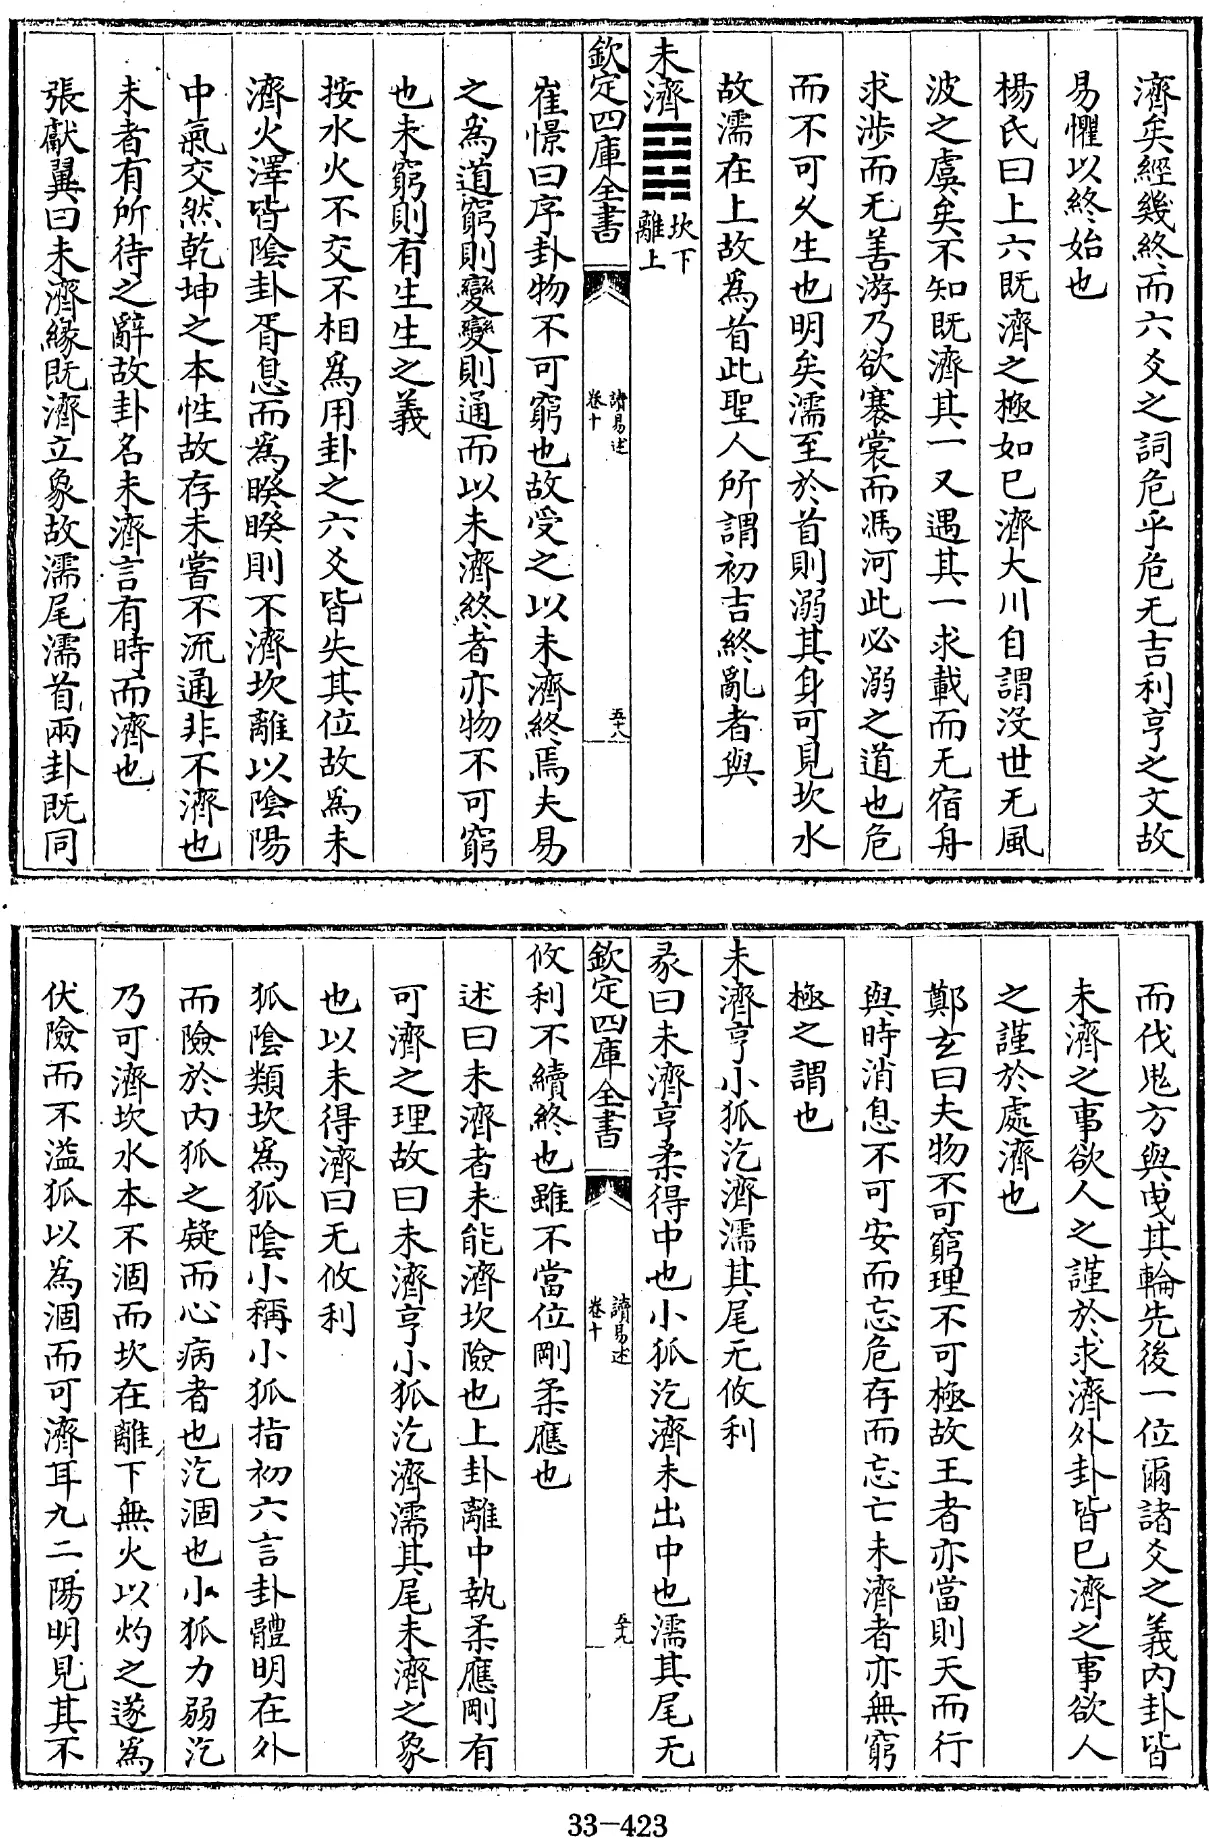 濟矣經幾終而六爻之詞危乎危无吉利亨之文故
易懼以終始也
楊氏曰上六既濟之極如已濟大川自謂沒世无風
波之虞矣不知既濟其一又遇其一求載而无宿舟
求涉而无善游乃欲褰裳而馮河此必溺之道也危
而不可久生也明矣濡至於首則溺其身可見坎水
故濡在上故爲首此聖人所謂初吉終亂者與
未濟䷿坎下離上
欽定四庫全書
讀易述
卷十
五十八
崔憬曰序卦物不可窮也故受之以未濟終焉夫易
之爲道窮則變變則通而以未濟終者亦物不可窮
也未窮則有生生之義
按水火不交不相爲用卦之六爻皆失其位故爲未
濟火澤皆陰卦胥息而爲睽睽則不濟坎離以陰陽
中氣交然乾坤之本性故存未嘗不流通非不濟也
未者有所待之辭故卦名未濟言有時而濟也
張獻翼曰未濟緣既濟立象故濡尾濡首兩卦既同
而伐鬼方與曳其輪先後一位爾諸爻之義內卦皆
未濟之事欲人之謹於求濟外卦皆已濟之事欲人
之謹於處濟也
鄭玄曰夫物不可窮理不可極故王者亦當則天而行
與時消息不可安而忘危存而忘亡未濟者亦無窮
極之謂也
未濟亨小狐汔濟濡其尾无攸利
彖曰未濟亨柔得中也小狐汔濟未出中也濡其尾无
欽定四庫全書
讀易述
卷十
五十九
攸利不續終也雖不當位剛柔應也
述曰未濟者未能濟坎險也上卦離中執柔應剛有
可濟之理故曰未濟亨小狐汔濟濡其尾未濟之象
也以未得濟曰无攸利
狐陰類坎爲狐陰小稱小狐指初六言卦體明在外
而險於內狐之疑而心病者也汔涸也小狐力弱汔
乃可濟坎水本不涸而坎在離下無火以灼之遂爲
伏險而不溢狐以為涸而可濟耳九二陽明見其不
33-423